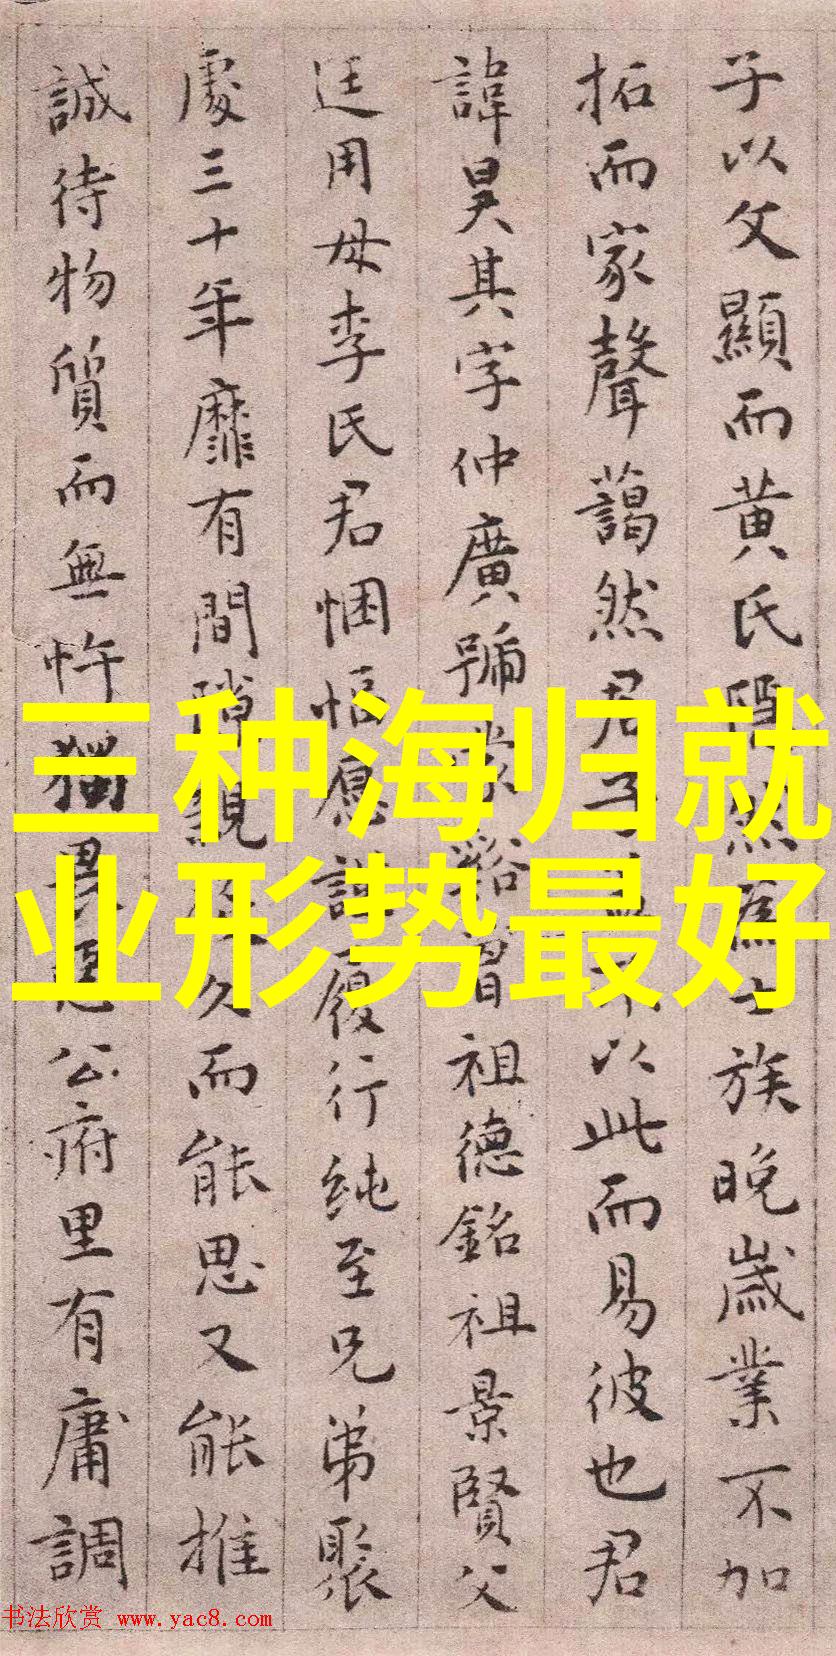 子以父顯而黄氏隱然為士族晚歳業不加
拓而家聲藹然君子不以此而易彼也君
諱昊其字仲廣號祖德銘祖景賢父
廷用母李氏君悃愊履行純至兄弟聚
處三十年靡有間隙親久而能思又能推
誠待物質而無忤獨畏公府里有庸調
三种海归就
业形势最好
书法欣赏 www.yac8.com